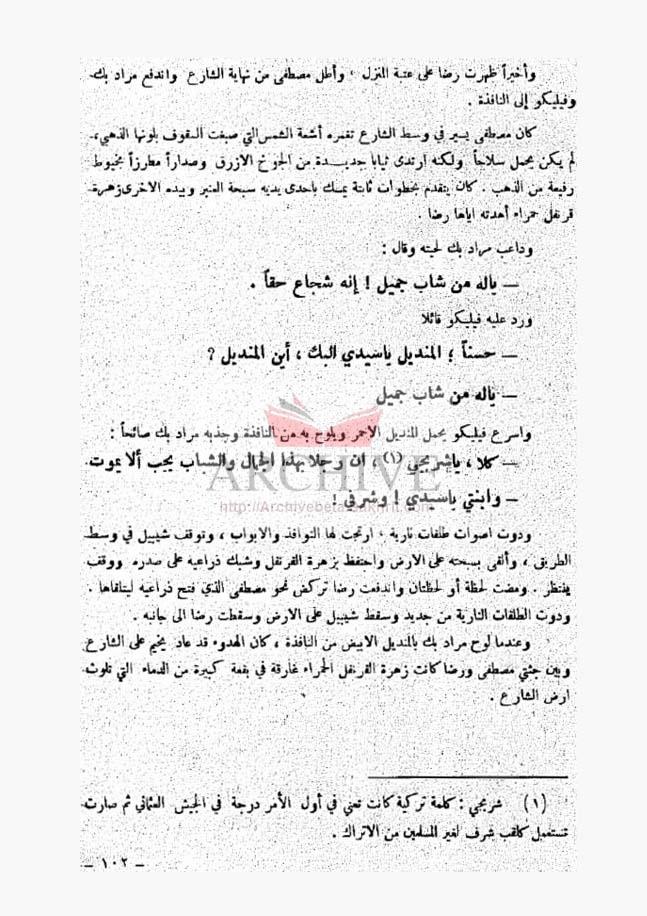 وأخيراً ظهرت رضا على عتبة المنزل ، وأطل مصطفى من نهاية الشارع واندفع مراد بك
وفيليكو إلى النافذة .
كان مصطفى يسير في وسط الشارع تغمره أشعة الشمس التي صبغت السقوف بلونها الذهبي،
لم يكن يحمل سلاحاً ولكنه ارتدى ثيابا جديدة من الجوخ الازرق وصداراً مطرزاً بخيوط
رفيعة من الذهب . كان يتقدم بخطوات ثابتة يمسك باحدى يديه سبحة العنبر وبيده الاخرى زهرة
قرنفل حمراء أهدته اياها رضا .
وداعب مراد بك لحيته وقال :
— ياله من شاب جميل ! إنه شجاع حقاً .
ورد عليه فيليكو قائلا
— حسناً ؛ المنديل ياسيدي البك ، أين المنديل ?
— ياله من شاب جميل
واسرع فيليكو يحمل المنديل الاحمر ويلوح به من النافذة وجذبه مراد بك صائحاً :
— كلا ، ياشربجي (١) ، ان رجلا بهذا الجمال والشباب يجب ألا يموت.
— وابنتي ياسيدي ! وشرفي !
ARCHIVE
http://Archivebeta.Sakhrit.com
ودوت اصوات طلقات نارية ، ارتجت لها النوافذ والابواب ، وتوقف شيبيل في وسط
الطريق ، وألقى بسبحته على الارض واحتفظ بزهرة القرنفل وشبك ذراعيه على صدره ووقف
ينتظر . ومضت لحظة أو لحظتان واندفعت رضا تركض نحو مصطفى الذي فتح ذراعيه ليتلقاها .
ودوت الطلقات النارية من جديد وسقط شيبيل على الارض وسقطت رضا الى جانبه .
وعندما لوح مراد بك بالمنديل الابيض من النافذة ، كان الهدوء قد عاد يخيم على الشارع
وبين جثتي مصطفى ورضا كانت زهرة القرنفل الحمراء غارقة في بقعة كبيرة من الدماء التي تلوث
ارض الشارع .
(١) شربجي : كلمة تركية كانت تعني في أول الأمر درجة في الجيش العثماني ثم صارت
تستعمل كلقب شرف لغير المسلمين من الاتراك .
— ١٠٢ —